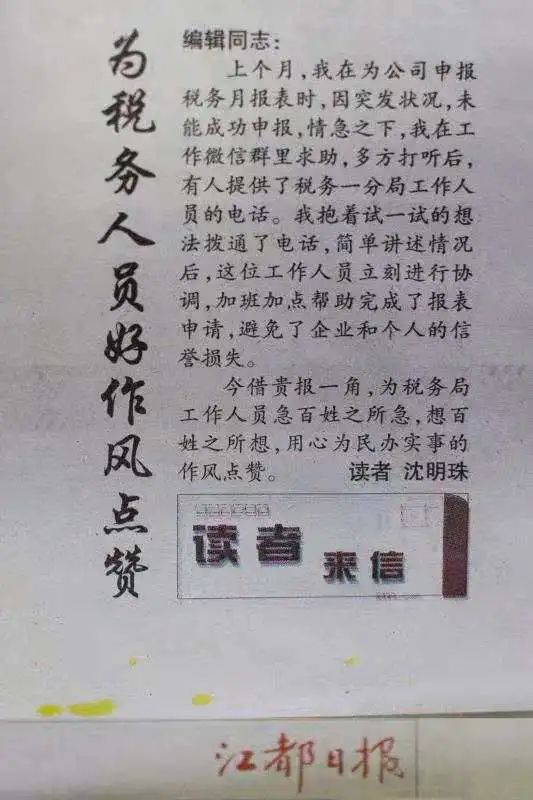 为税务人员好作风点赞
编辑同志：
上个月，我在为公司申报
税务月报表时，因突发状况，未
能成功申报，情急之下，我在工
作微信群里求助，多方打听后，
有人提供了税务一分局工作人
员的电话。我抱着试一试的想
法拨通了电话，简单讲述情况
后，这位工作人员立刻进行协
调，加班加点帮助完成了报表
申请，避免了企业和个人的信
誉损失。
今借贵报一角，为税务局
工作人员急百姓之所急，想百
姓之所想，用心为民办实事的
作风点赞。 读者 沈明珠
读者
来信
江都日报